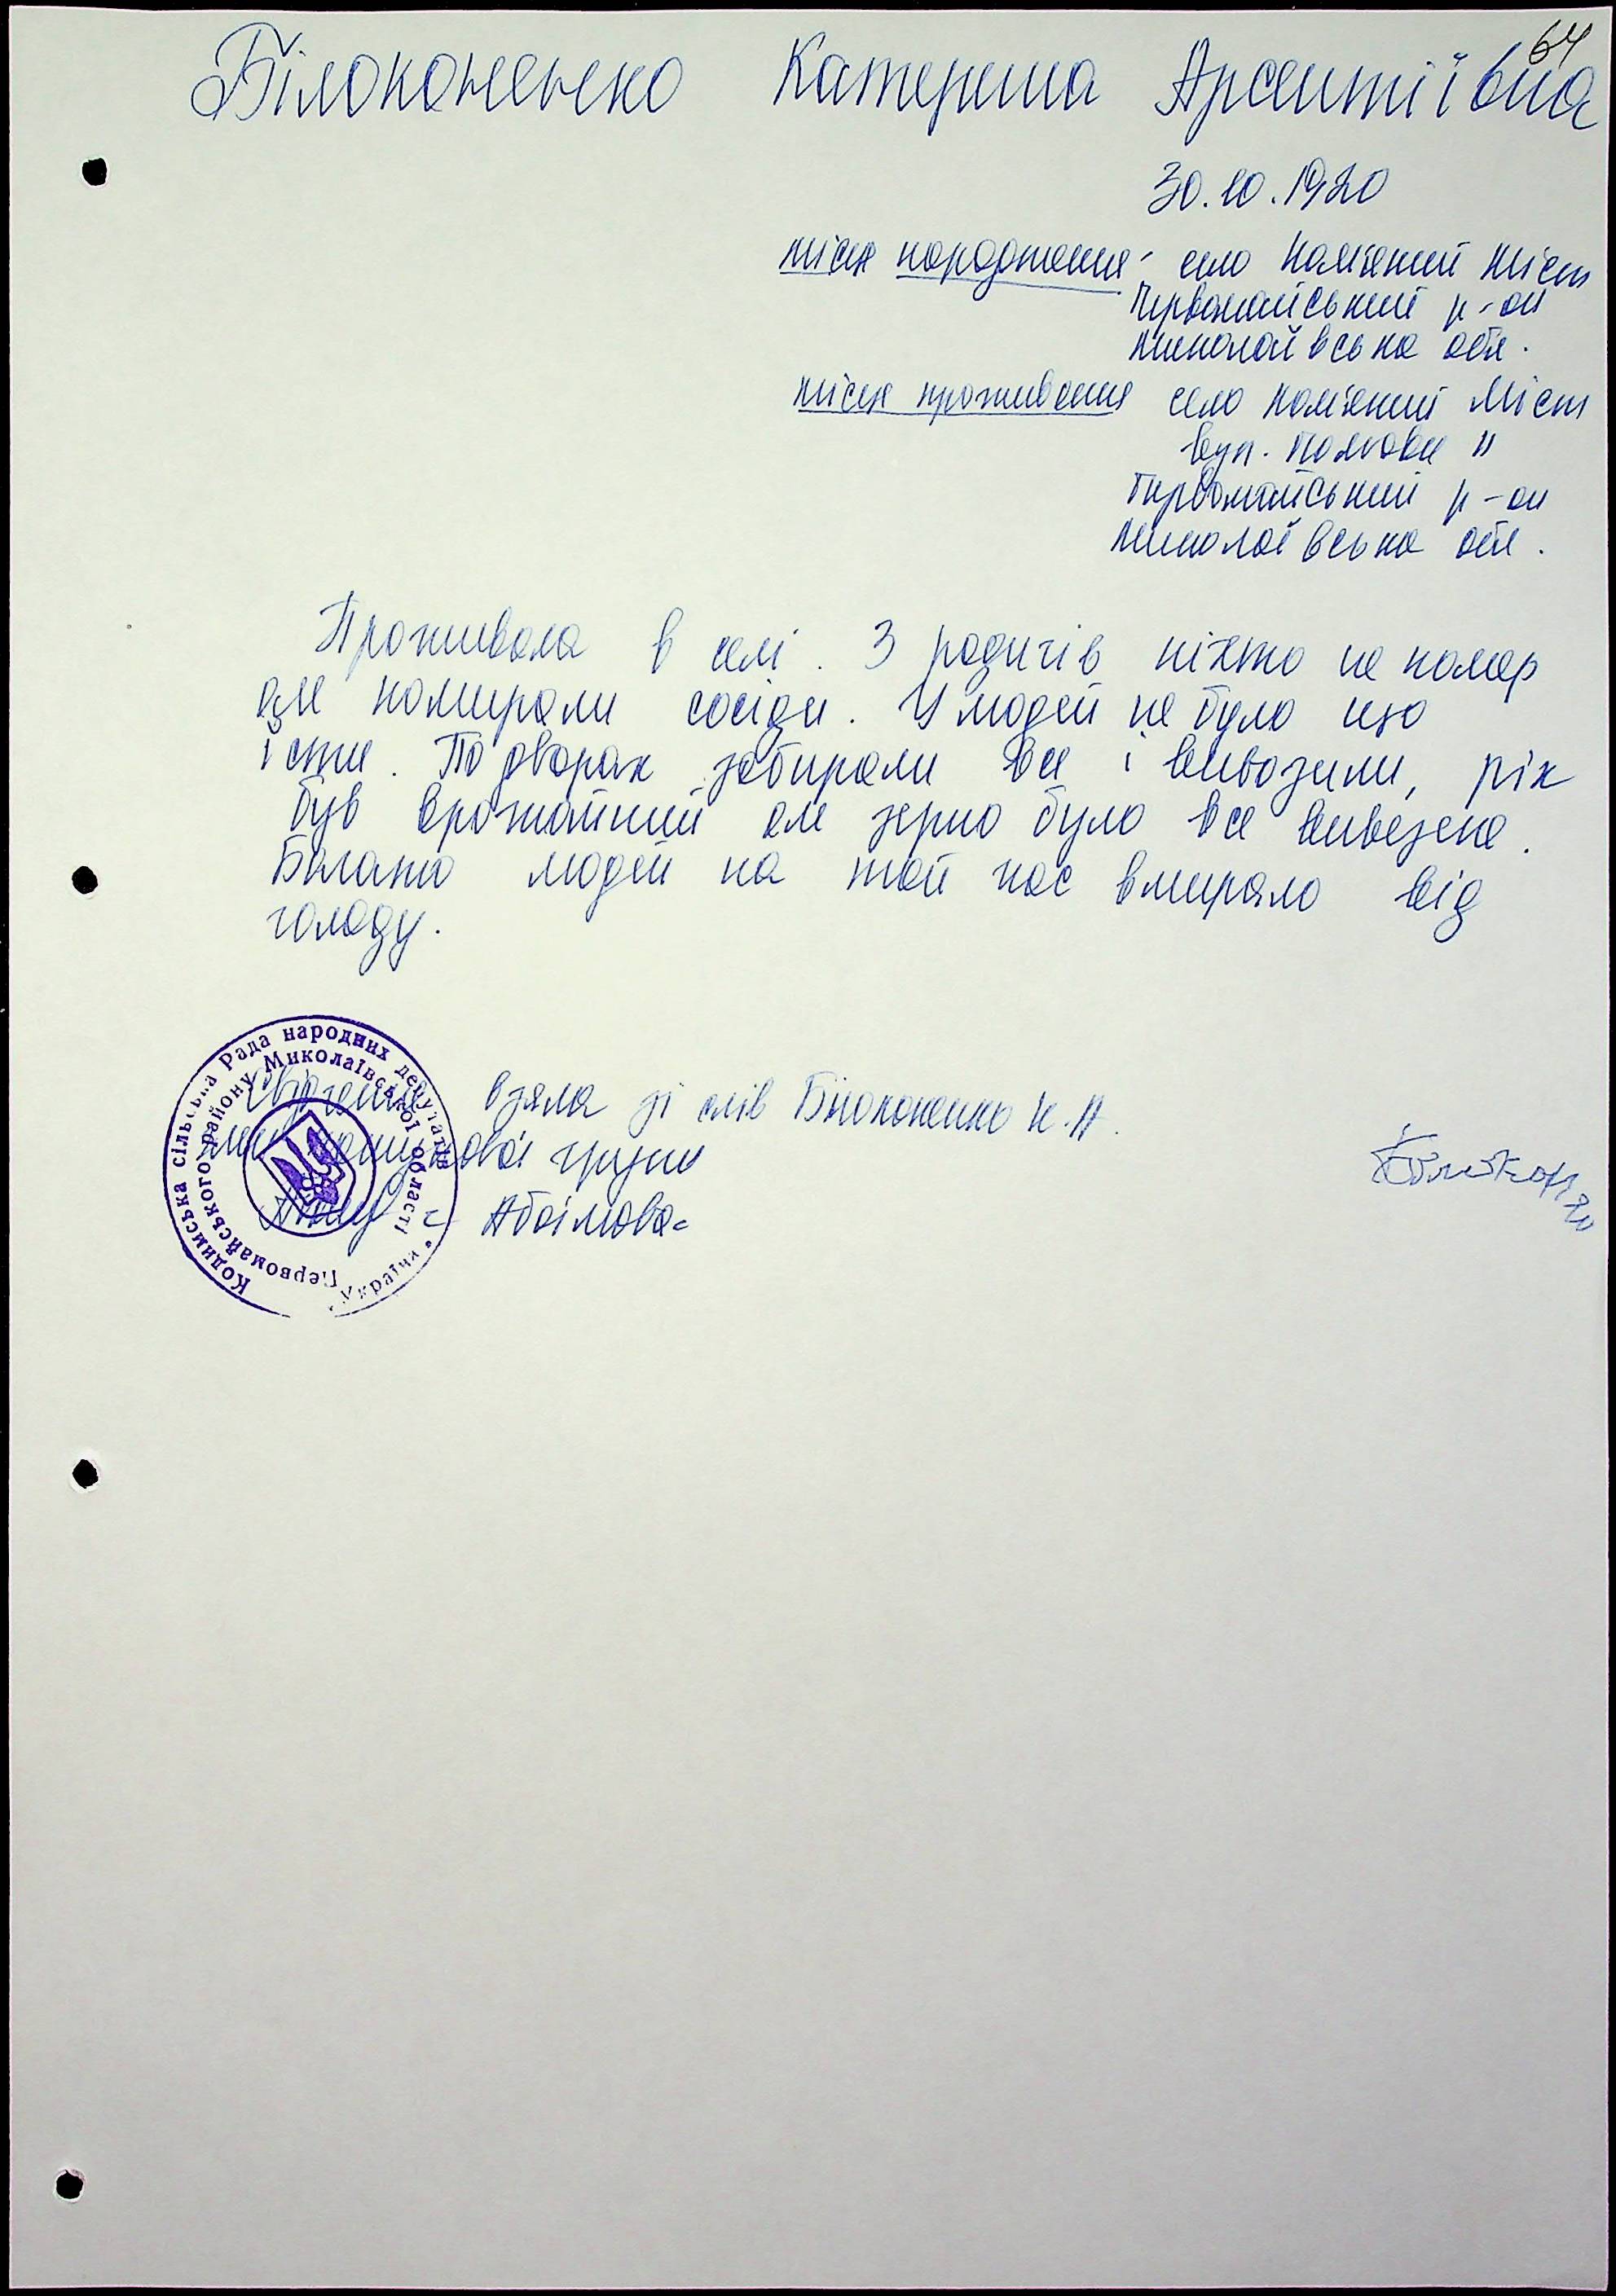 64
Білоконенко Катерина Арсентіївна
30.10.1920
місце народження - село Кам'яний Міст
Первомайський р-он
Миколаївська обл.
місце проживання село Кам'яний Міст
вул. Польова 11
Первомайський р-он
Миколаївська обл.
Проживала в селі. З родичів ніхто не помер
але помирали сосіди. У людей не було що
їсти. По дворах забирали все і вивозили, рік
був врожайний але зерно було все вивезене.
Багато людей на той час вмирало від
голоду.
Свідчення взяла зі слів Білоконенко К.А.
пошукової групи
Абоімова
Кодимська сільська Рада народних депутатів
Первомайського району Миколаївської області
Україна